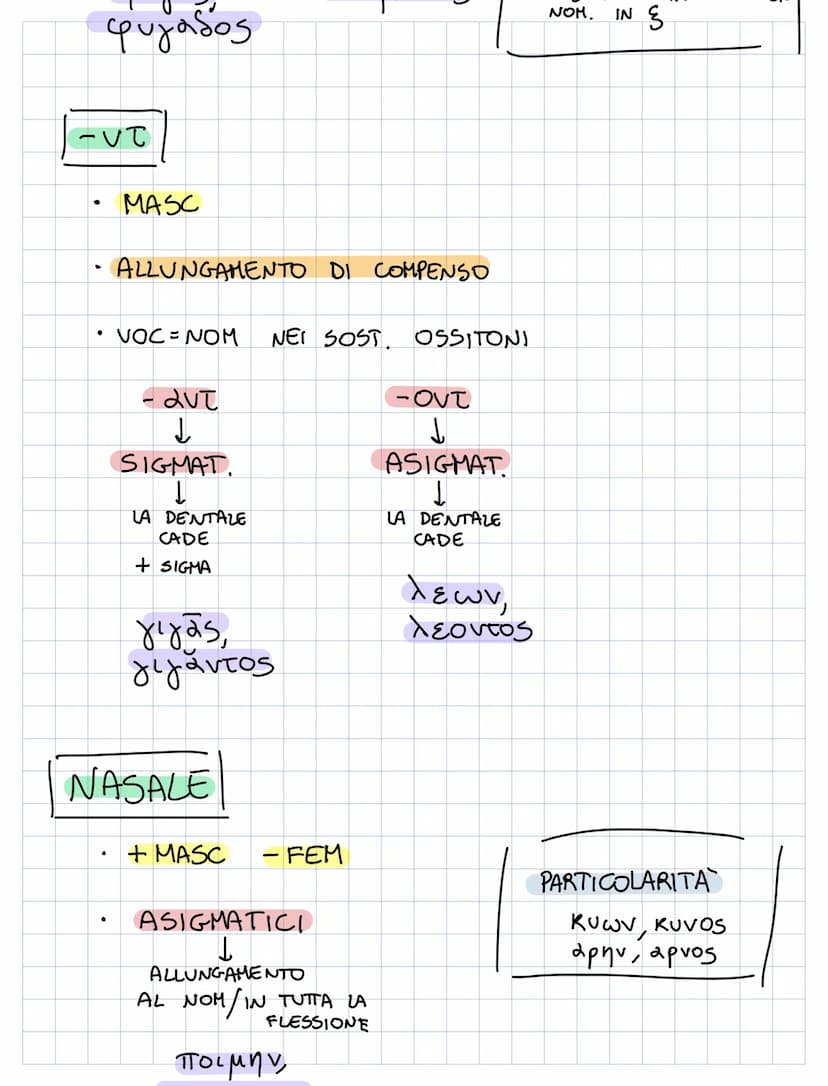 φυγαδος
NOM. IN ξ
-ντ
· MASC
· ALLUNGAMENTO DI COMPENSO
· VOC = NOM NEI SOST. OSSITONI
- αντ
↓
SIGMAT.
↓
LA DENTALE
CADE
+ SIGMA
γιγᾱς,
γιγᾰντος
- οντ
↓
ASIGMAT.
↓
LA DENTALE
CADE
λεων,
λεοντος
NASALE
· + MASC - FEM
· ASIGMATICI
↓
ALLUNGAMENTO
AL NOM/IN TUTTA LA
FLESSIONE
ποιμην,
PARTICOLARITÀ
κυων, κυνος
αρην, αρνος